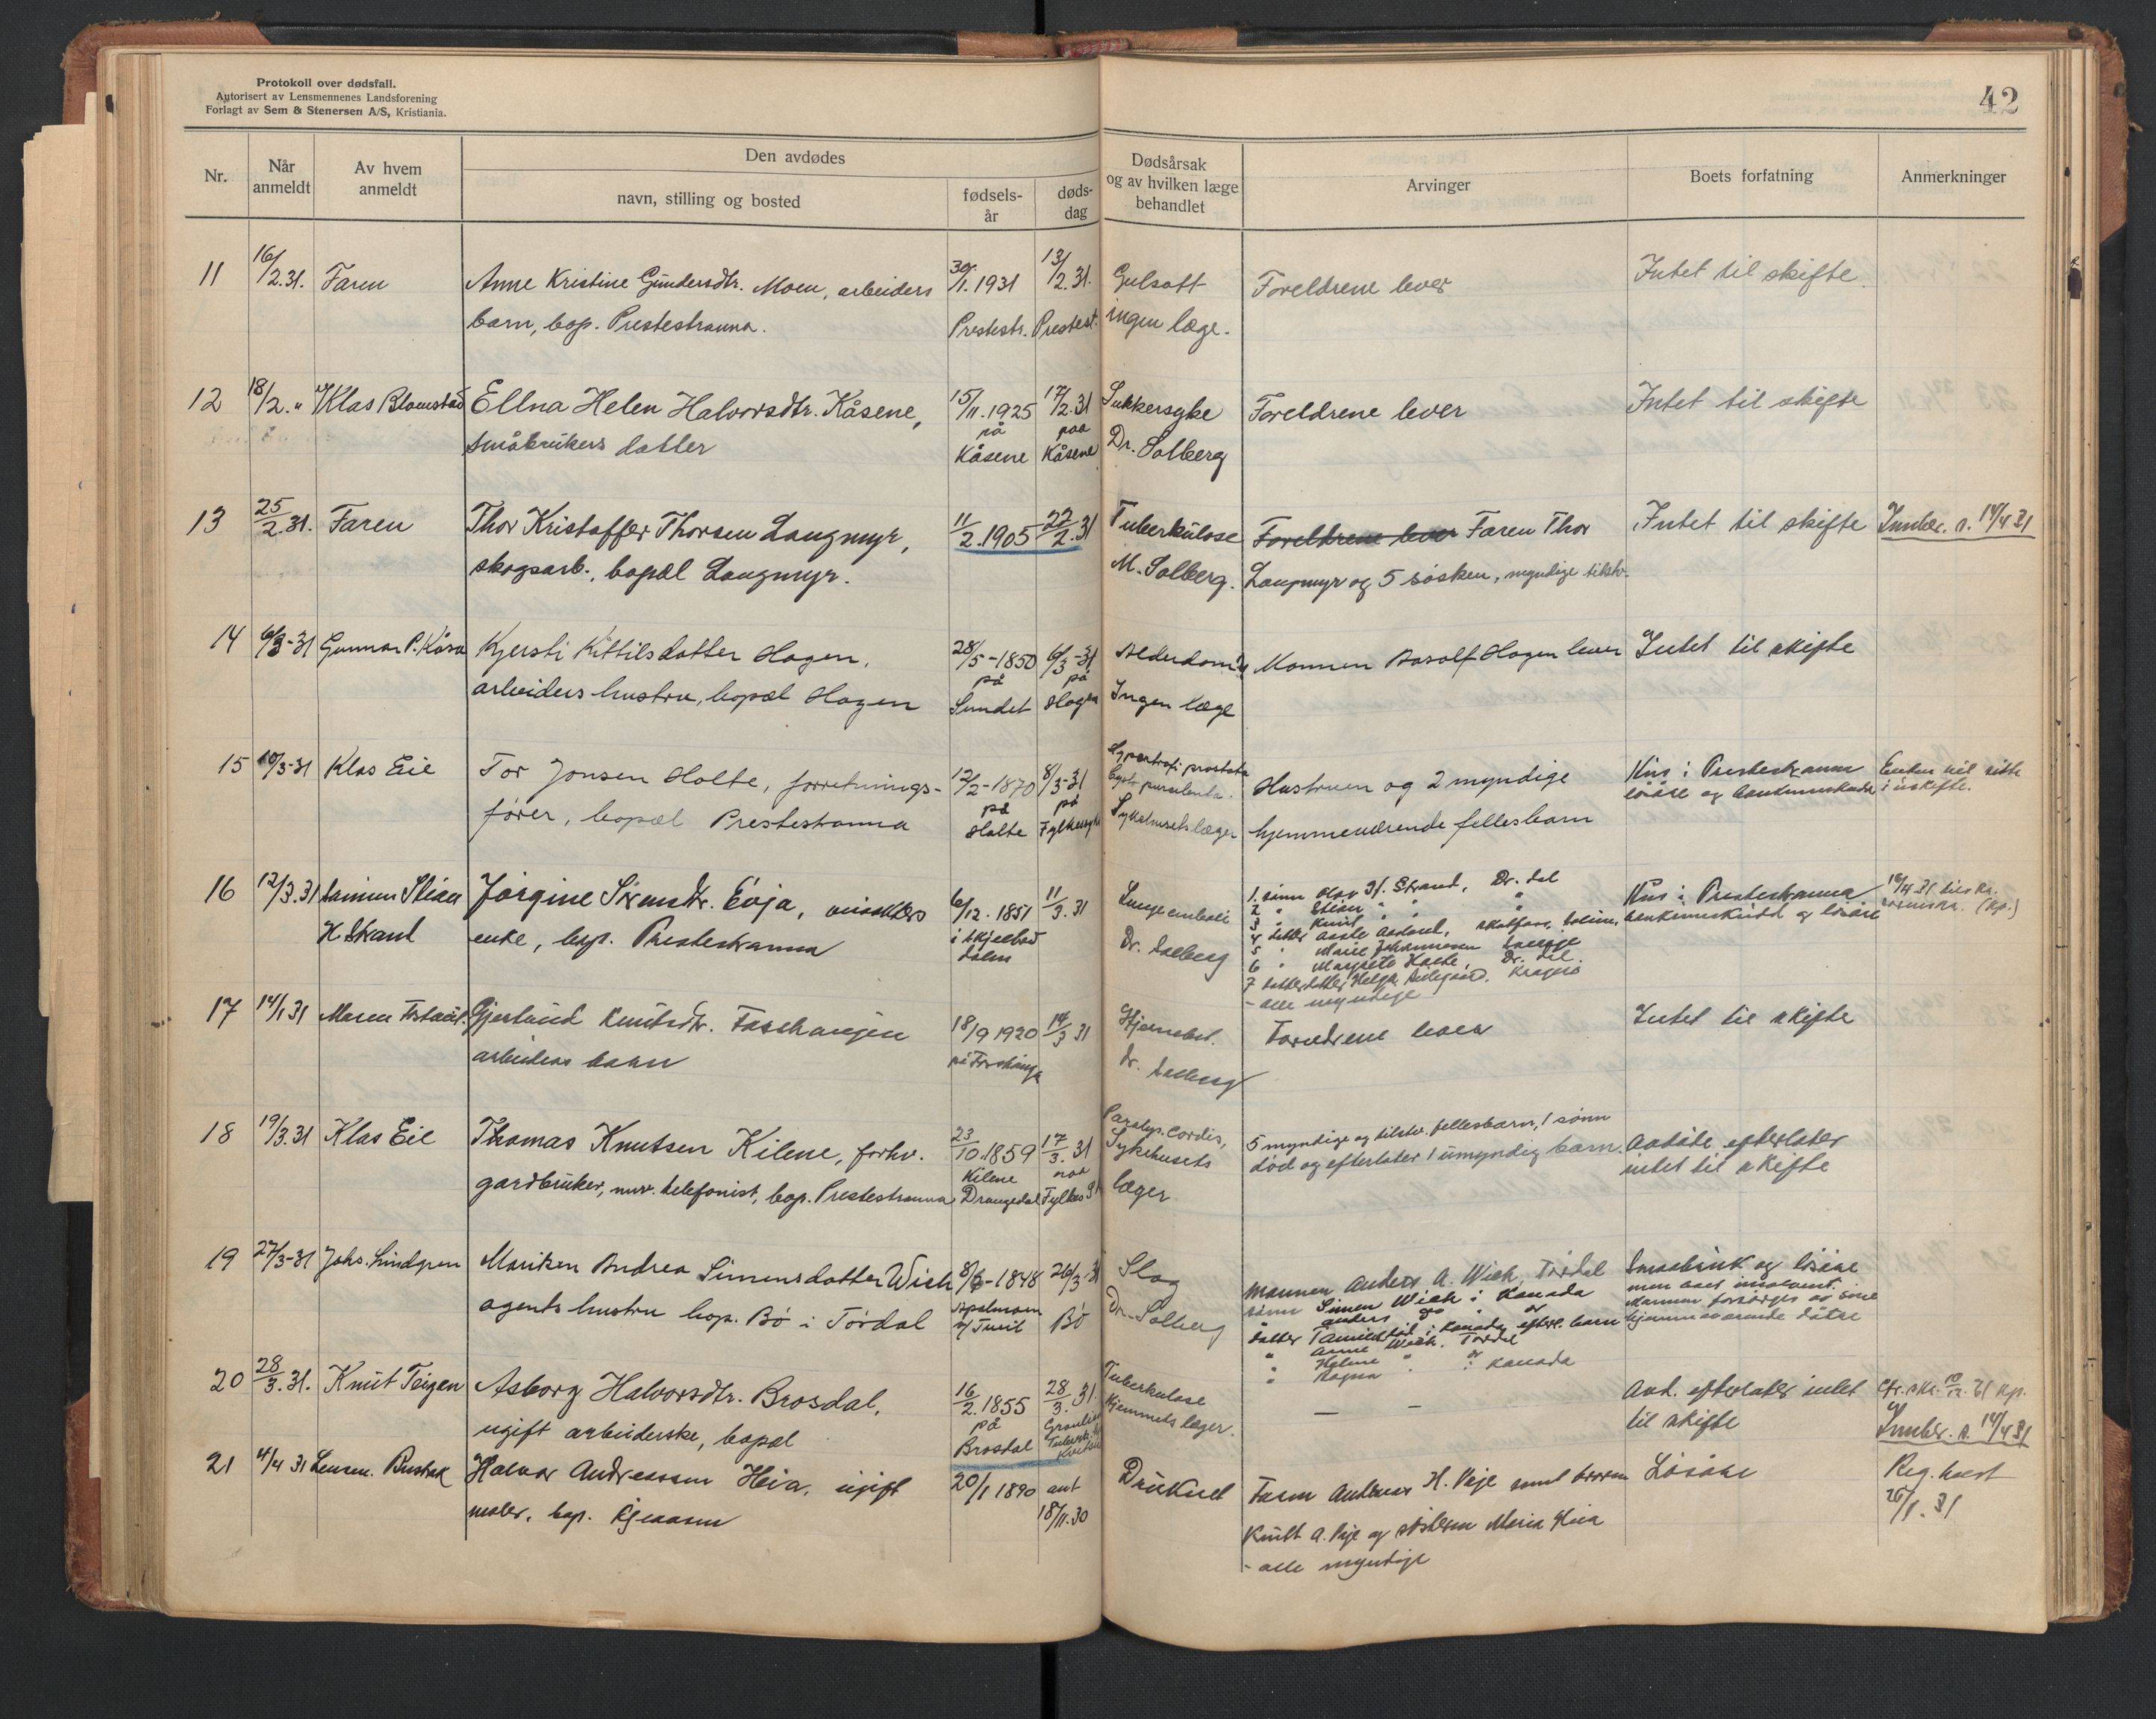 Protokoll over dødsfall.
Autorisert av Lensmennenes Landsforening
Forlagt av Sem & Stenersen A/S, Kristiania.
42
Nr.
Når anmeldt
Av hvem anmeldt
Den avdødes
navn, stilling og bosted
fødsels-år
døds-dag
Dødsårsak og av hvilken læge behandlet
Arvinger
Boets forfatning
Anmerkninger
11 16/2.31. Faren Anne Kristine Gundersdtr. Moen, arbeiders 30/1.1931 13/2.31. Gulsott Foreldrene lever Intet til skifte.
barn, bop. Prestestranna. Prestestr. Prestest. ingen læge.
12 18/2. " Klas Blomstad Ellna Helen Halvorsdtr. Kåsene, 15/11.1925 17/2.31 Sukkersyke Foreldrene lever Intet til skifte
småbrukers datter på Kåsene paa Kåsene Dr. Solberg
13 25/2.31. Faren Thor Kristoffer Thorsen Langmyr, 11/2.1905 22/2.31 Tuberkulose Foreldrene lever Faren Thor Intet til skifte Innber. s. 14/4 31
skogsarb., bopæl Langmyr. M. Solberg. Langmyr og 5 søsken, myndige tilstv.
14 6/3-31 Gunnar P. Kåsa Kjersti Kittilsdatter Hagen, 28/5-1850 6/3-31 Alderdom Mannen Aasolf Hagen lever Intet til skifte
arbeiders hustru, bopæl Hagen på Sundet på Hagen Ingen læge
15 10/3-31 Klas Eie Tor Jonsen Holte, forretnings- 12/2-1870 8/3-31 Hypertrofi prostata Hustruen og 2 myndige Hus i Prestestranna Enken vil sitte
fører, bopæl Prestestranna på Holte på Fylkessykh Cyst. purulenta. Sykehusets læger hjemmeværende fellesbarn løsøre og bankinnskudd i uskifte.
16 12/3.31 Stian Jørgine Sørensdtr. Evja, 6/12.1851 11/3.31 Lungeemboli 1. sønn Olav H. Strand, Dr.dal Hus i Prestestranna 14/4 31
H Strand enke, bop. Prestestranna i Skjelbredalen Dr. Solberg 2 " Stian " " bankinnskudd og løsøre
3 " Knut " "
4 datter Aaste
5 " Marie Johannessen
6 " Margrete Holte, Dr.dal.
7 datterdatter Helga Kragerø
- alle myndige
17 14/3 31 Maren Gjertrud Knutsdtr. 18/9 1920 14/3 31 Hjernebet. Foreldrene lever Intet til skifte
arbeiders barn Dr. Solberg
18 19/3.31 Klas Eie Thomas Knutsen Kilene, forhv. 23/10.1859 17/3.31 Paralys. cordis, 5 myndige og tilstv. fellesbarn, 1 sønn Avdøde efterlater
gardbruker, nuv. telefonist, bop. Prestestranna Kilene Drangedal paa Fylkes S Sykehusets læger død og efterlater 1 umyndig barn. intet til skifte
19 27/3-31 Johs. Lindgren Mariken Andrea Simensdatter Wich 8/6-1848 26/3-31 Slag Mannen Anders A. Wich, Tørdal Småbruk og løsøre
agents hustru bop. Bø i Tørdal Bø Dr. Solberg sønn Simen Wich i Kanada men boet insolvent.
" Anders do " do Mannen forsørges av sine
datter i Kanada, efterl. barn hjemmeværende døtre
" Anne Wich. Tørdal
" Helene " do
" Ragna " i Kanada
20 28/3.31. Knut Teigen Asborg Halvorsdtr. Brosdal, 16/2.1855 28/3.31. Tuberkulose — — Avd. efterlater intet
ugift arbeiderske, bopæl på Brosdal Hjemmets læger. til skifte Innber. s. 14/4 31
21 4/4 31 Lensm. Halvor Andreassen Heia, ugift 20/1 1890 ant 18/11.30 Druknet Faren Andreas H. Løsøre Reg. holdt
maler, bop. Knut A. og søsteren Maria Heia 26/1.31
- alle myndige